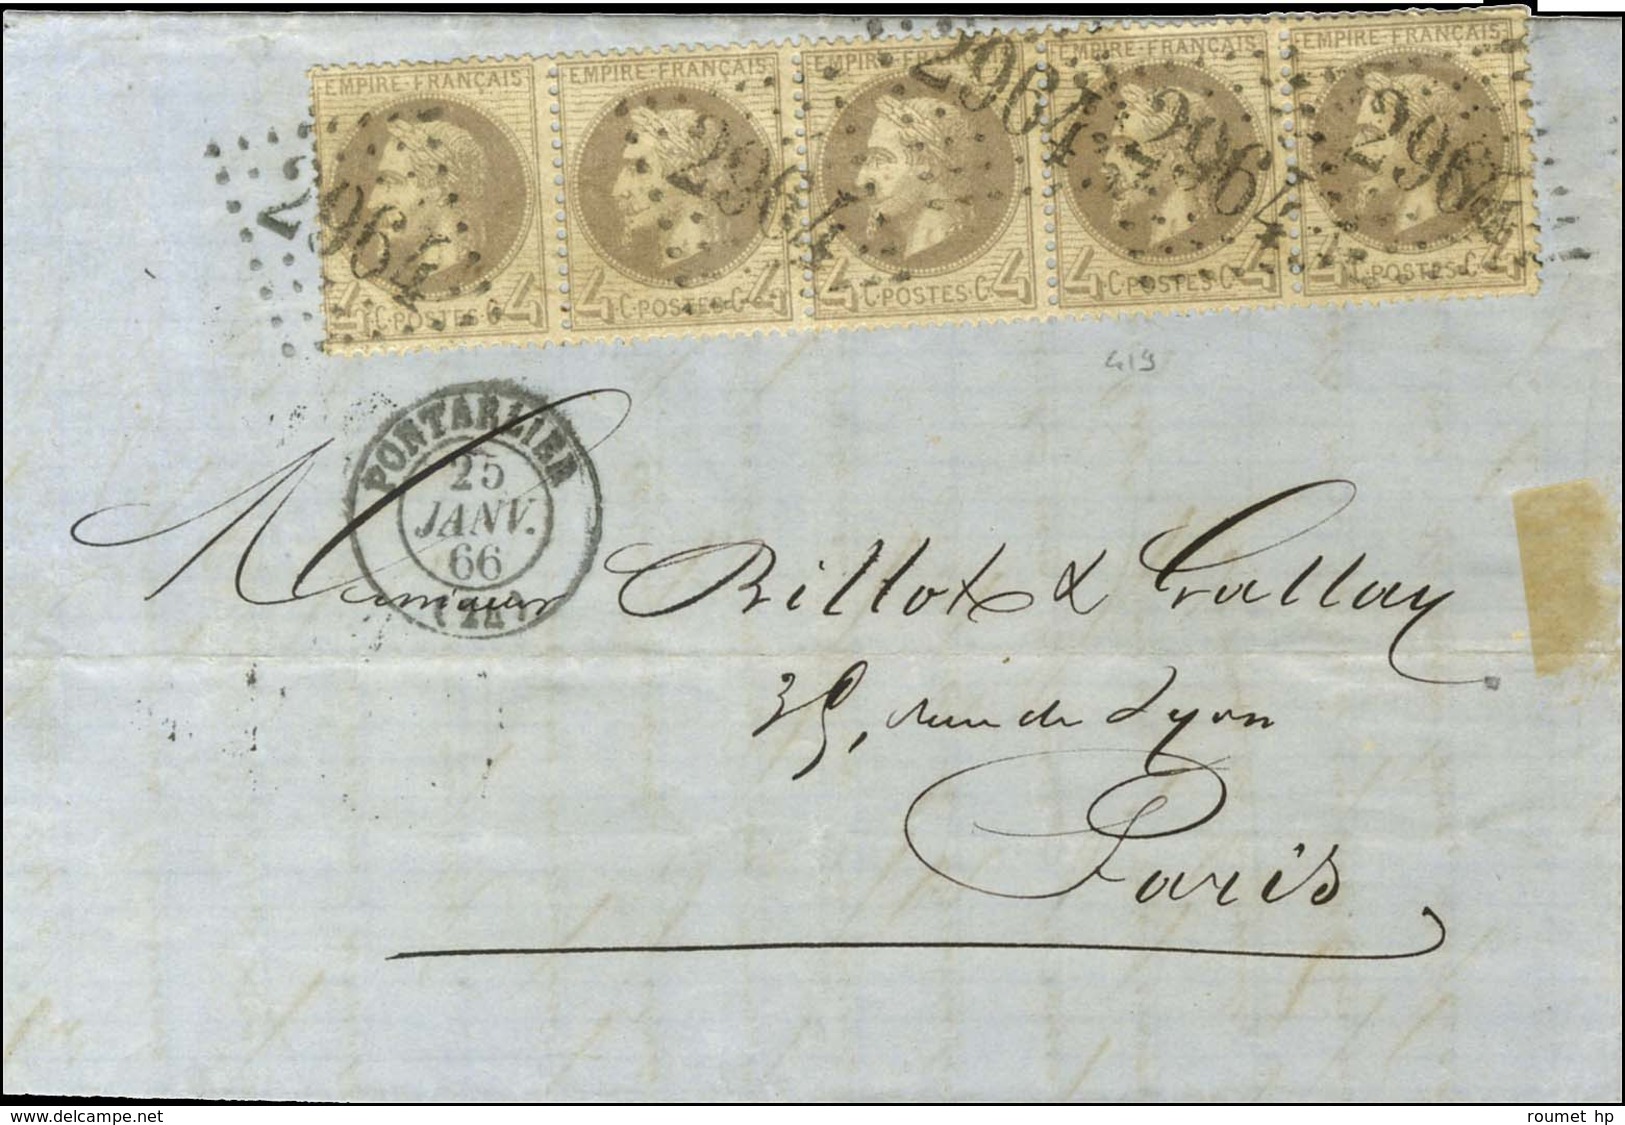 EMPIRE-FRANÇAIS EMPIRE-FRANÇAIS EMPIRE-FRANÇAIS EMPIRE-FRANÇAIS EMPIRE-FRANÇAIS
2964 2964 2964 2964 2964
4 C·POSTES·C· 4 4 C·POSTES·C· 4 4 C·POSTES·C· 4 4 C·POSTES·C· 4 4 C·POSTES·C· 4
419
PONTARLIER
25
JANV.
66
(24)
Messieurs Billot & Gallay
35, rue de Lyon
Paris
www.delcampe.net
roumet hp